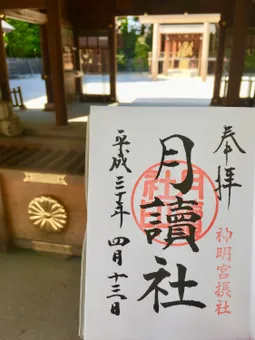 奉拝
神明宮摂社
月讀社
平成三十年四月十三日